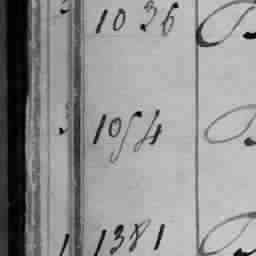 1036 B
1054 B
1381 B